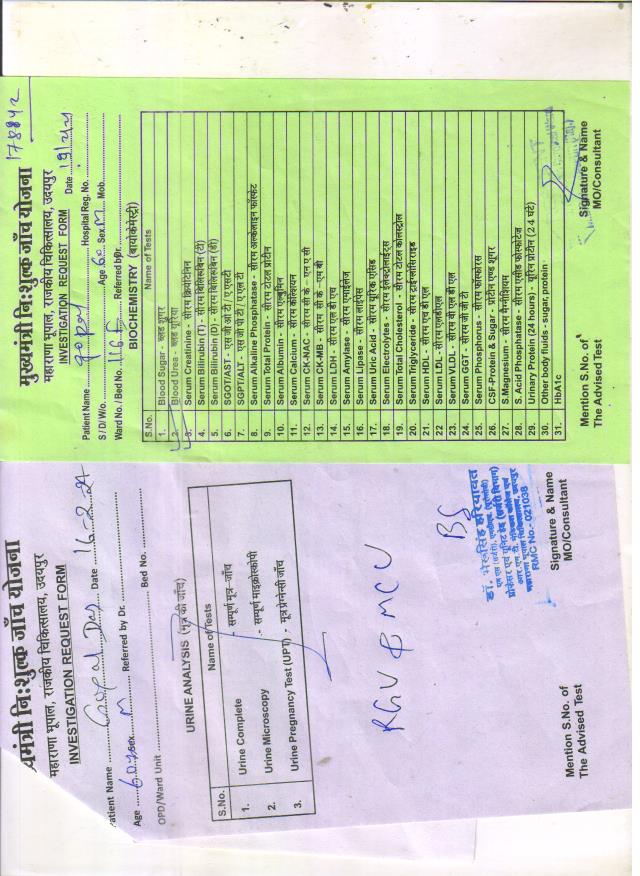 178842
मुख्यमंत्री निःशुल्क जाँच योजना
महाराणा भूपाल, राजकीय चिकित्सालय, उदयपुर
INVESTIGATION REQUEST FORM
Date
Patient Name Hospital Reg. No.
S / D / W/o. Age 60 Sex M Mob.
Ward No. / Bed No. 116 F Referred by Dr.
BIOCHEMISTRY (बायोकेमेस्ट्री)
S.No. Name of Tests
1. Blood Sugar - ब्लड शुगर
2. Blood Urea - ब्लड यूरिया
3. Serum Creatinine - सीरम क्रियेटिनिन
4. Serum Bilirubin (T) - सीरम बिलिरूबिन (टी)
5. Serum Bilirubin (D) - सीरम बिलिरूबिन (डी)
6. SGOT/AST - एस जी ओ टी/ ए एसटी
7. SGPT/ALT - एस जी पी टी/ ए एल टी
8. Serum Alkaline Phosphatase - सीरम अल्केलाइन फॉस्फेट
9. Serum Total Protein - सीरम टोटल प्रोटीन
10. Serum Albumin - सीरम एल्बूमिन
11. Serum Calcium - सीरम कैल्शियम
12. Serum CK-NAC - सीरम सी के - एन ए सी
13. Serum CK-MB - सीरम सी के -एम बी
14. Serum LDH - सीरम एल डी एच
15. Serum Amylase - सीरम एमाईलेज
16. Serum Lipase - सीरम लाईपेस
17. Serum Uric Acid - सीरम यूरिक एसिड
18. Serum Electrolytes - सीरम ईलेक्ट्रोलाईट्स
19. Serum Total Cholesterol - सीरम टोटल कोलस्ट्रोल
20. Serum Triglyceride - सीरम ट्राईग्लिसिराइड
21. Serum HDL - सीरम एच डी एल
22 Serum LDL - सीरम एलडीएल
23. Serum VLDL - सीरम वी एल डी एल
24. Serum GGT - सीरम जी जी टी
25. Serum Phosphorus - सीरम फॉस्फोरस
26. CSF-Protein & Sugar - प्रोटीन एण्ड शुगर
27. S.Magnesium - सीरम मैग्नीशियम
28. S.Acid Phosphatase - सीरम एसीड फोस्फेटेज
29. Urinary Protein (24 hours) - यूरिन प्रोटीन (24 घंटे)
30. Other body fluids - sugar, protein
31. HbA1c
Mention S.No. of
The Advised Test
Signature & Name
MO/Consultant
मुख्यमंत्री निःशुल्क जाँच योजना
महाराणा भूपाल, राजकीय चिकित्सालय, उदयपुर
INVESTIGATION REQUEST FORM
Patient Name Gopal Das Date 16-2-21
Age 60 y Sex M Referred by Dr.
OPD/Ward Unit Bed No.
URINE ANALYSIS (मूत्र की जाँच)
S.No. Name of Tests
1. Urine Complete - सम्पूर्ण मूत्र -जाँच
2. Urine Microscopy - सम्पूर्ण माइक्रोस्कोपी
3. Urine Pregnancy Test (UPT) - मूत्र प्रेग्नेन्सी जाँच
RGU & MCU
BS
RMC No.- 021038
Mention S.No. of
The Advised Test
Signature & Name
MO/Consultant